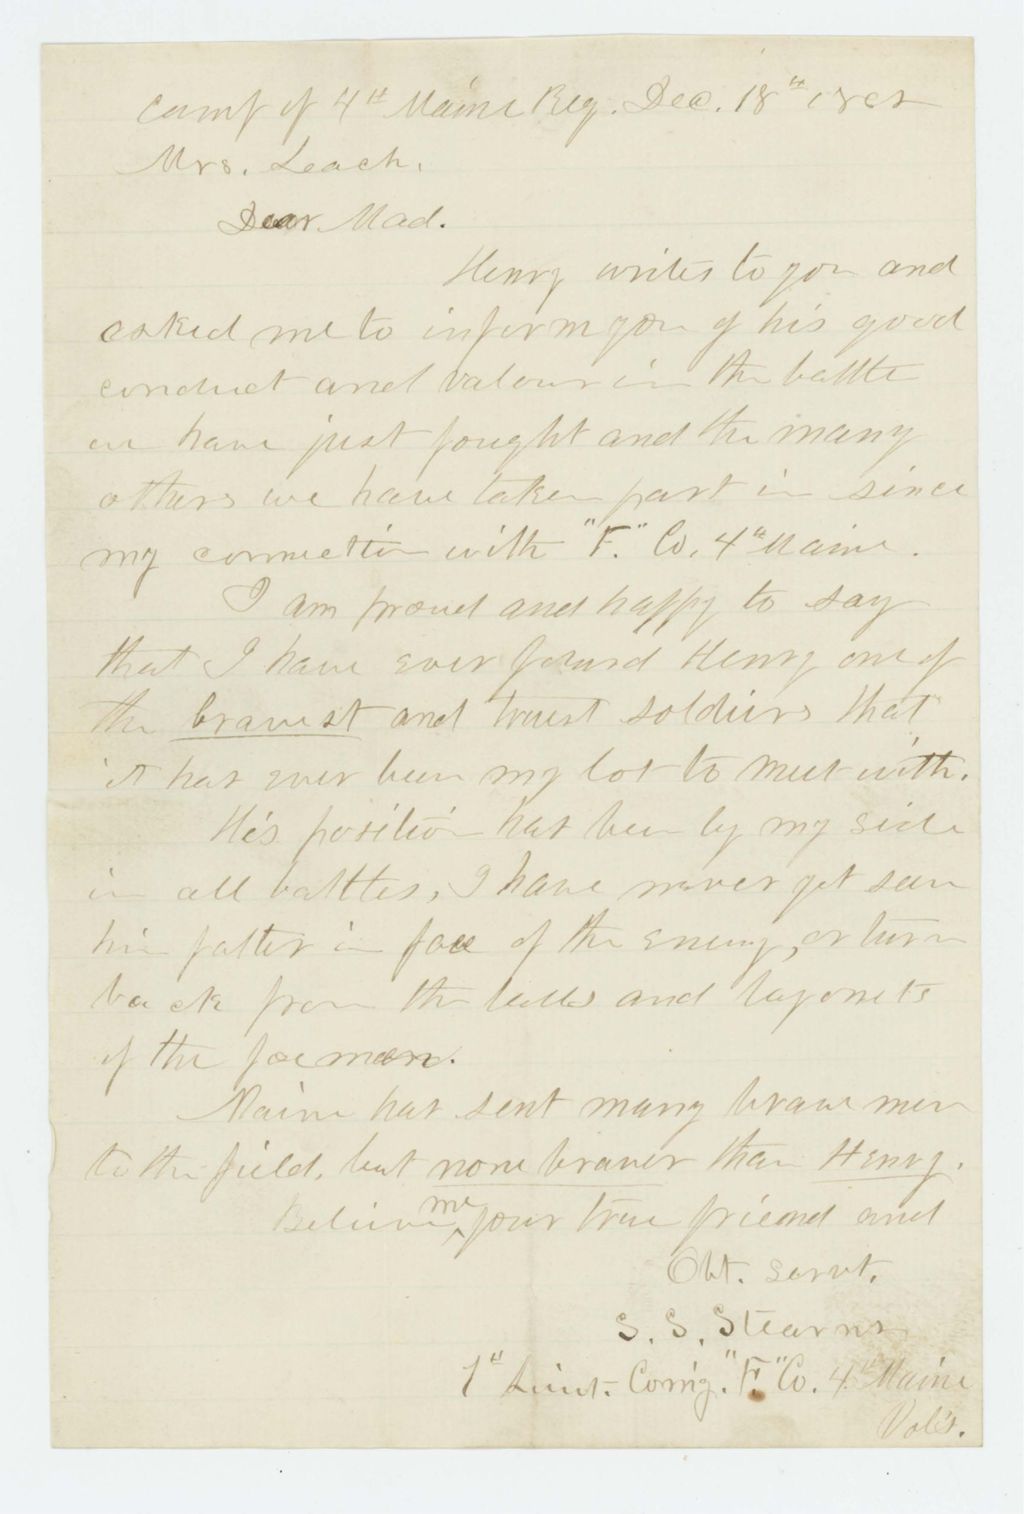 Camp of 4th Maine Reg. Dec. 18th 1862
Mrs. Leach.
Dear Mad.
Henry writes to you and
asked me to inform you of his good
conduct and valour in the battle
we have just fought and the many
others we have taken part in since
my connection with "F." Co. 4th Maine.
I am proud and happy to say
that I have ever found Henry one of
the bravest and truest soldiers that
it has ever been my lot to meet with.
His position has been by my side
in all battles, I have never yet seen
him falter in face of the enemy, or turn
back from the balls and bayonets
of the foeman.
Maine has sent many brave men
to the field, but none braver than Henry.
Believe me your true friend and
Obt. servt.
S. S. Stearns
1st Lieut. Com'g. "F." Co. 4th Maine
Vols.